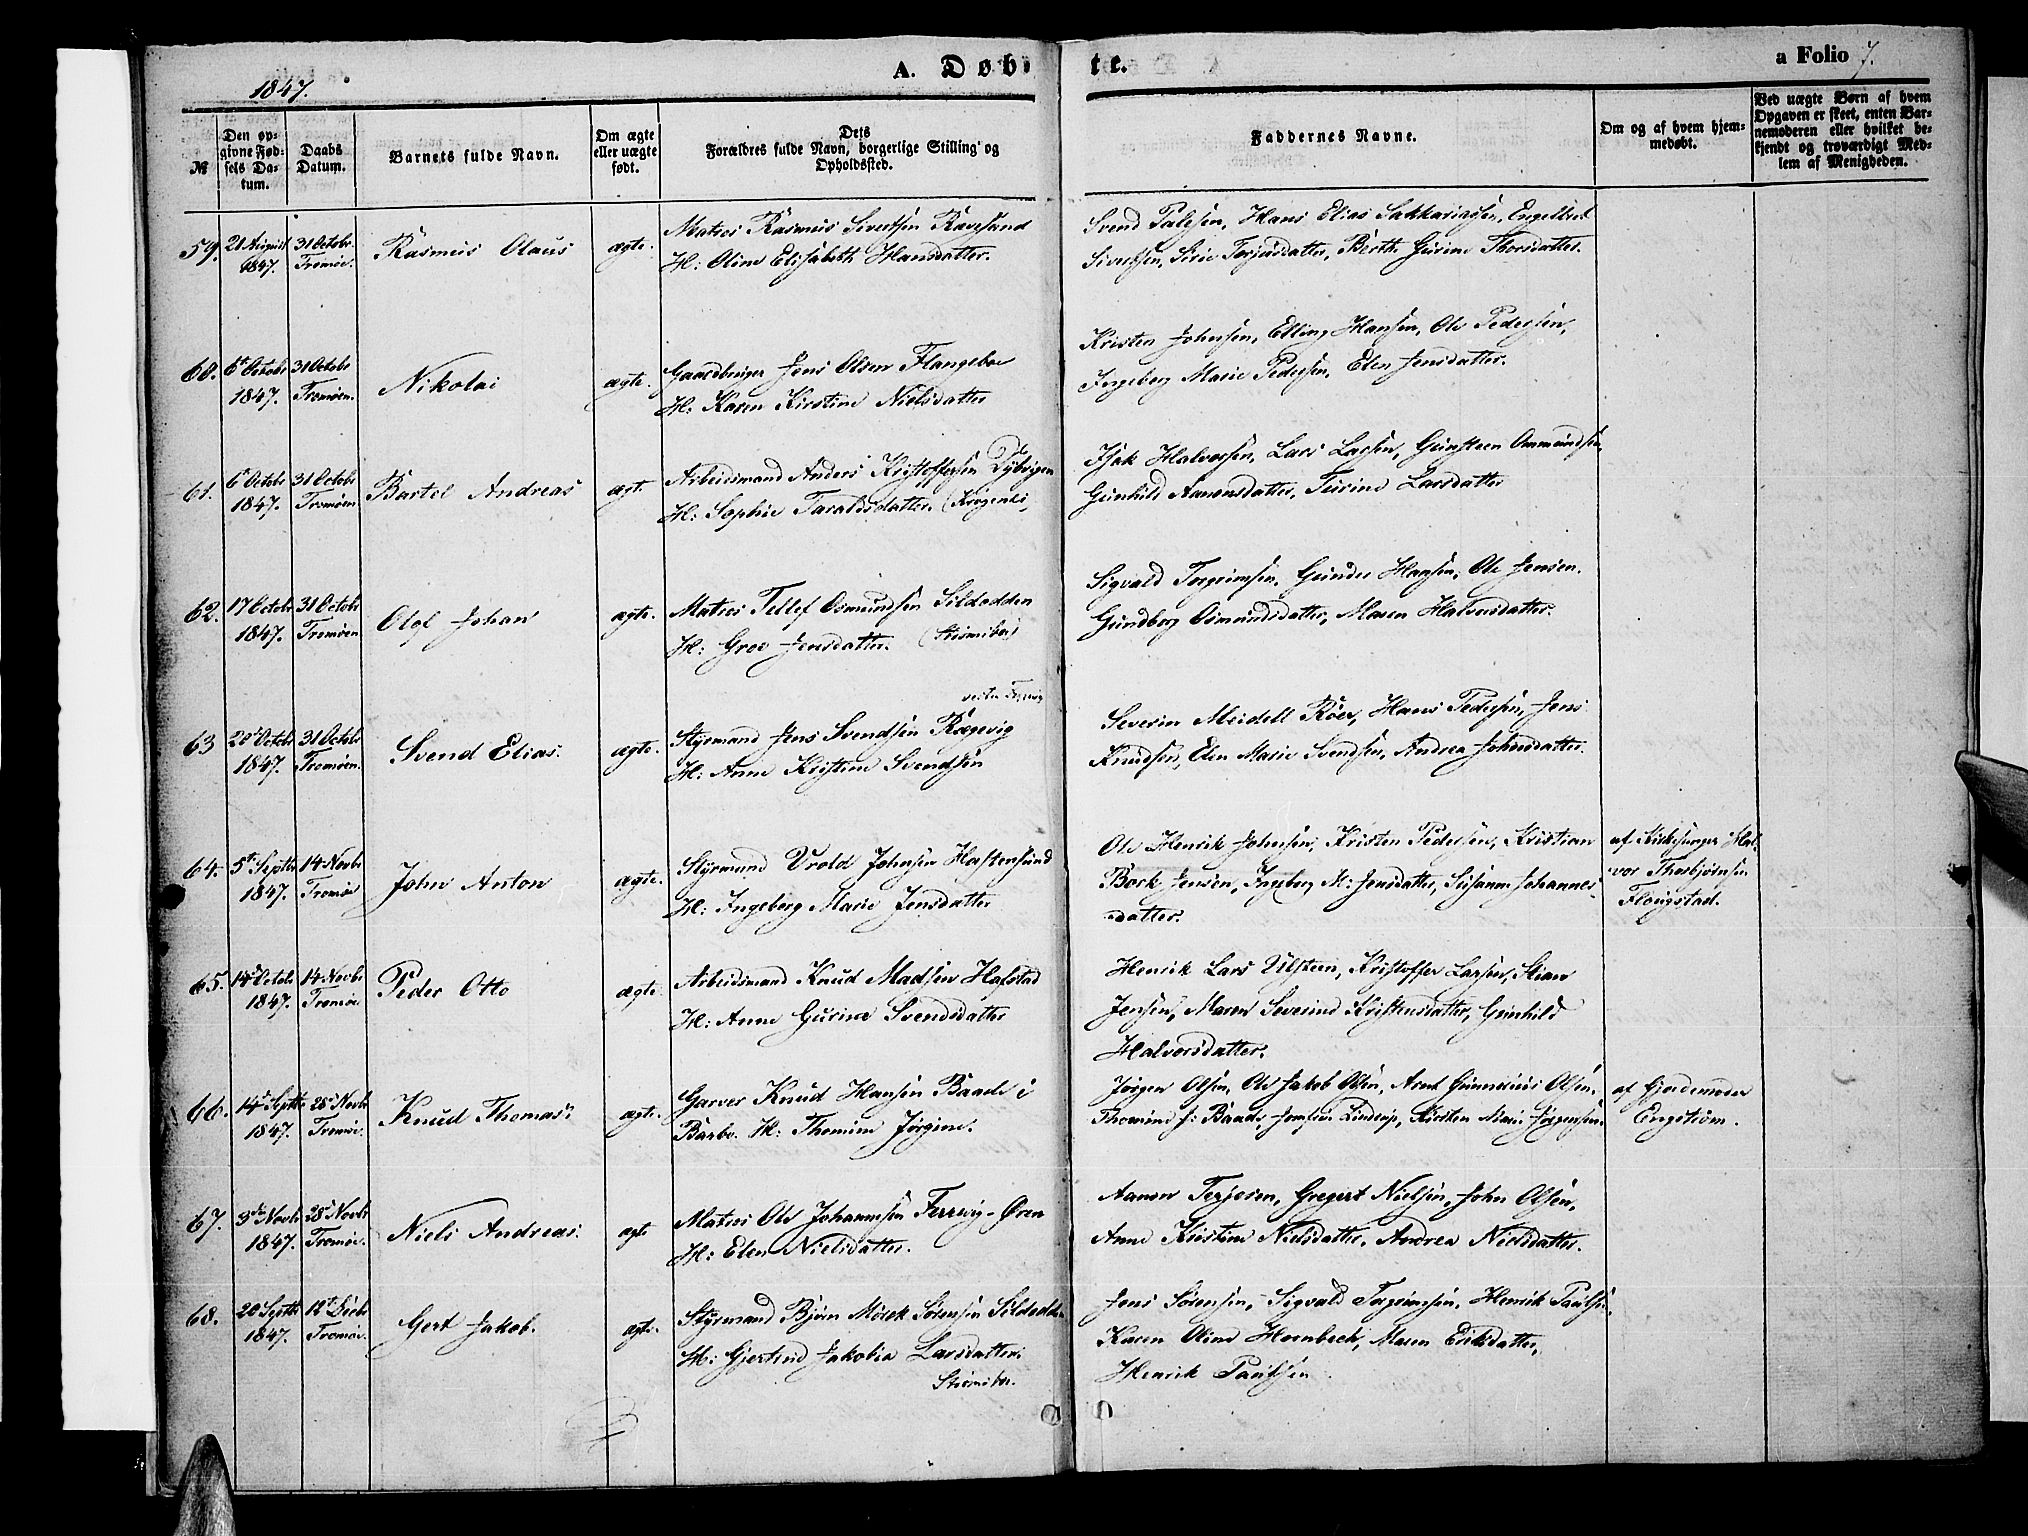 1847.
A. Døbte.
a Folio 7.
№
Den opgivne Fødsels Datum.
Daabs Datum.
Barnets fulde Navn.
Om ægte eller uægte født.
Dets Forældres fulde Navn, borgerlige Stilling og Opholdssted.
Faddernes Navne.
Om og af hvem hjemmedøbt.
Ved uægte Børn af hvem Opgaven er skeet, enten Barnemoderen eller hvilket bekjendt og troværdigt Medlem af Menigheden.
59. 21 August 1847. 31 Octobr. Tromøe. Rasmus Olaus ægte.
Matros Rasmus Sivertsen Ravesand
H: Oline Elisabeth Hansdatter.
Svend Talesen, Hans Elias Sakkariassen, Engelbret
Sivertsen, Sirie Terjusdatter, Berthe Gurine Thorsdatter.
60. 6t Octobr 1847. 31 Octobr Tromøen. Nikolai ægte.
Gaardbruger Jens Olsen Flangeboe
H: Karen Kirstine Nielsdatter
Kristen Johnsen, Elling Hansen, Ole Pedersen,
Ingeborg Marie Pedersen, Elen Jensdatter.
61. 6t Octobr 1847. 31 Octobr Tromøen Bartel Andreas ægt.
Arbeidsmand Anders Kristoffersen Dybvigen
H: Sophie Taraldsdatter.
Isak Halvorsen, Lars Larsen, Gunsteen Ommundsen,
Gunhild Aanonsdatter, Turine Larsdatter
62. 17 Octobr 1847. 31 Octobr Tromøen Olaf Johan ægte.
Matros Tellef Osmundsen Sildodden
H: Groe Jensdatter. (Strømsboe)
Sigvald Torgrimsen, Gunder Hansen, Ole Jensen.
Gundborg Osmundsdatter, Maren Halvorsdatter.
63 20 Octobr 1847. 31 Octobr Tromøen. Svend Elias. ægte.
Styrmand Jens Svendsen Rægevig
H: Anne Kristine Svendsen
Severin Meidell Röer, Hans Pedersen, Jens
Knudsen, Elen Marie Svendsen, Andrea Johnsdatter.
64. 5t Septbr 1847. 14 Novbr Tromøe John Anton ægte.
Styrmand Vrold Johnsen Hastensund
H: Ingeborg Marie Jensdatter
Ole Henrik Johnsen, Kristen Pedersen, Kristian
Bork Jensen, Ingeborg M: Jensdatter, Susanne Johannes-
datter.
af Kirkesanger Hal-
vor Thorbjørnsen
Flougstad.
65. 14 Octobr 1847. 14 Novbr Tromøe Peder Otto ægte.
Arbeidsmand Knud Madsen Hofstad
H: Anne Gurine Svendsdatter
Henrik Lars Ulstein, Kristoffer Larsen, Stian
Jensen, Maren Severine Kristensdatter, Gunhild
Halvorsdatter.
66. 14 Septbr 1847. 28 Novbr Tromøe. Knud Thomas. ægte.
Garver Knud Hansen Baade i
Barbo. H: Thomine Jørgine.
Jørgen Olsen, Ole Jakob Olsen, Arnt Gunnerius Olsen,
Thomine J: Baade, Josefine Lindrup, Kirsten Marie Jørgensen.
af Gjordemoder
Engstrøm.
67. 3die Novbr 1847. 28 Novbr Tromøe. Niels Andreas. ægte
Matros Ole Johannsen Færevig-Øren
H: Elen Nielsdatter.
Aanon Terjesen, Gregert Nielsen, John Olsen,
Anne Kirstine Nielsdatter, Andrea Nielsdatter.
68. 20 Septbr 1847. 12t Decbr Tromøe. Gert Jakob. ægte.
Styrmand Bjørn Mørck Sørensen Sildodden
H: Gjertine Jakobia Larsdatter.
Strømsboe.
Jens Sørensen, Sigvald Torgrimsen, Henrik Paulsen,
Karen Oline Hornbech, Maren Eriksdatter,
Henrik Paulsen.